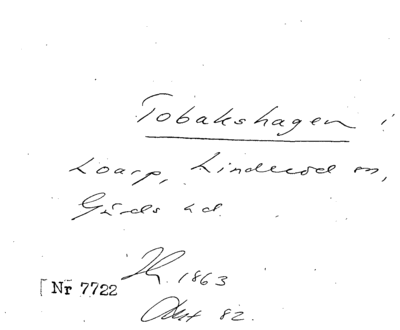 Tobakshagen i
Loarp, Linderöd sn,
Gärds hd.
1863
[Nr 7722
82.